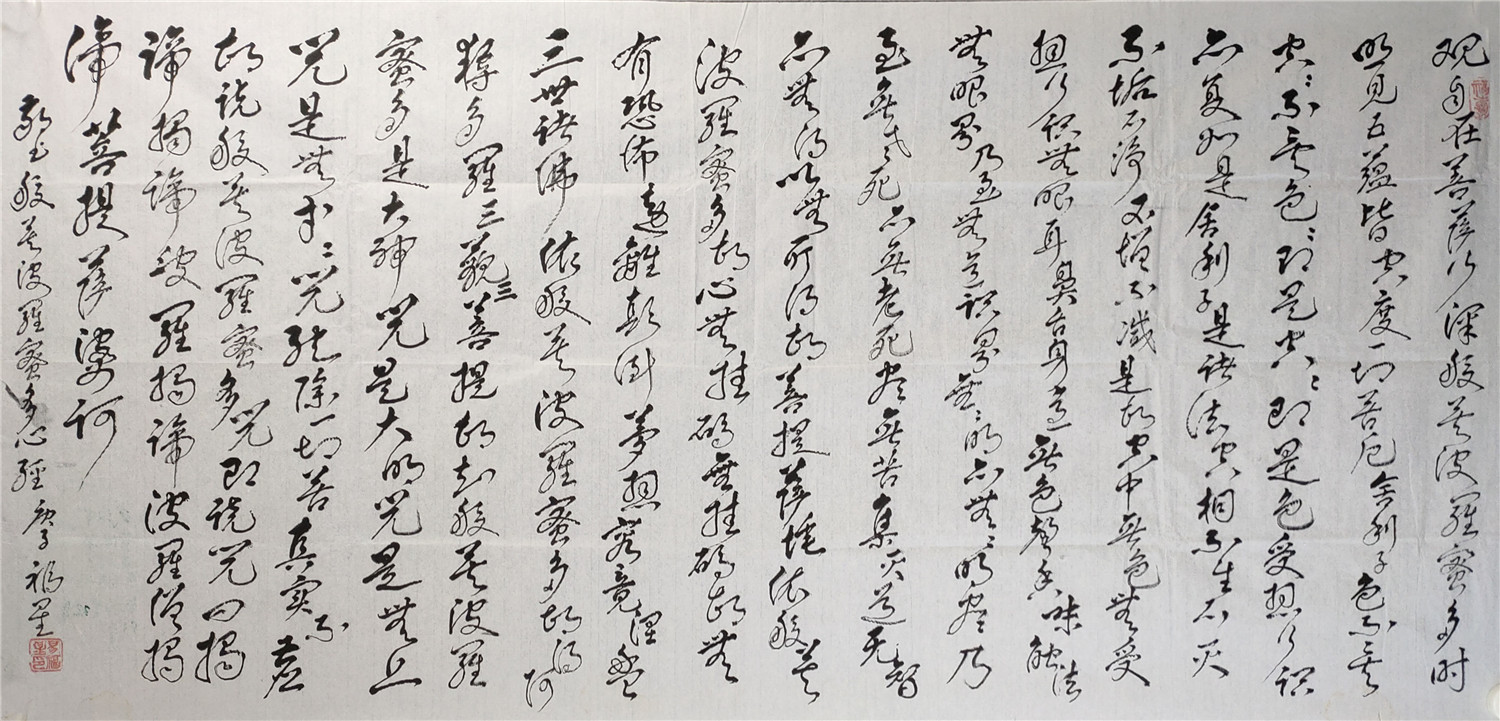 观自在菩萨行深般若波羅蜜多时
照见五蕴皆空度一切苦厄舍利子色不异
空々不异色々即是空々即是色受想行识
亦复如是舍利子是诸法空相不生不灭
不垢不净不增不减是故空中無色無受
想行识無眼耳鼻舌身意無色聲香味触法
無眼界乃至無意识界無々明亦無々明盡乃
至無老死亦無老死盡無苦集灭道无智
亦無得以無所得故菩提萨埵依般若
波羅蜜多故心無挂碍無挂碍故無
有恐怖遠離颠倒夢想究竟涅槃
三世诸佛依般若波羅蜜多故得阿
耨多羅三藐三菩提故知般若波羅
蜜多是大神咒是大明咒是無上
咒是無等々咒能除一切苦真实不虚
故说般若波羅蜜多咒即说咒曰揭
諦揭諦波羅揭諦波羅僧揭
諦菩提萨婆訶
敬书般若波羅蜜多心經庚子福星